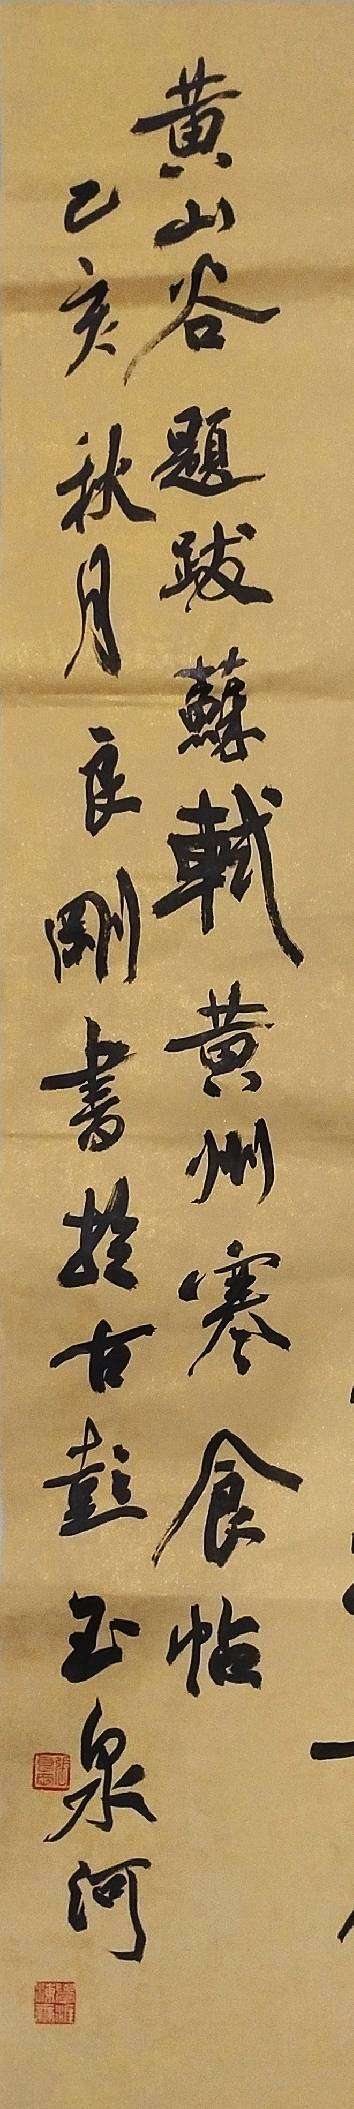 黄山谷題跋蘇軾黄州寒食帖
己亥秋月良剛書於古彭玉泉河